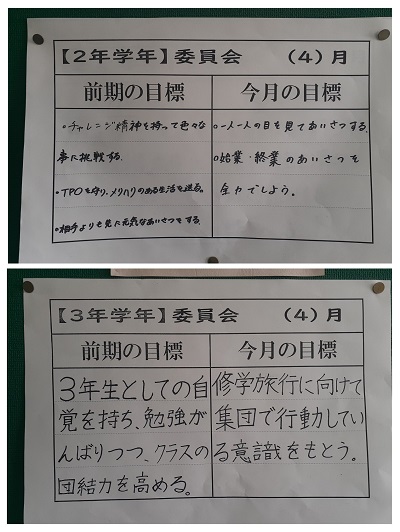 【2年学年】委員会　（4）月
前期の目標
今月の目標
・チャレンジ精神を持って色々な
事に挑戦する。
・TPOを守り、メリハリのある生活を送る。
・相手よりも先に元気なあいさつをする。
・一人一人の目を見てあいさつする。
・始業・終業のあいさつを
全力でしよう。
【3年学年】委員会　（4）月
前期の目標
今月の目標
3年生としての自
覚を持ち、勉強が
んばりつつ、クラスの
団結力を高める。
修学旅行に向けて
集団で行動してい
る意識をもとう。